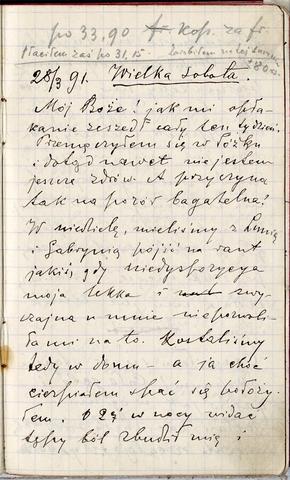 po 33,90 kop. za fr.
płaciłem zaś po 31,15.
28/3 91. Wielka sobota.
Mój Boże! jak mi opła-
kanie zeszedł cały ten tydzień.
Przemęczyłem się w łóżku
i dotąd nawet nie jestem
jeszcze zdrów. A przyczyna
tak na pozór bagatelna!
W niedzielę, mieliśmy z
i Gabrynią pójść na raut
jakiś, gdy niedyspozycya
moja lekka i zwy-
czajna u mnie niepozwoli-
ła mi na to. Zostaliśmy
tedy w domu - a ja choć
cierpiałem spać się położy-
łem. O 2½ w nocy widać
tępy ból zbudził mię i